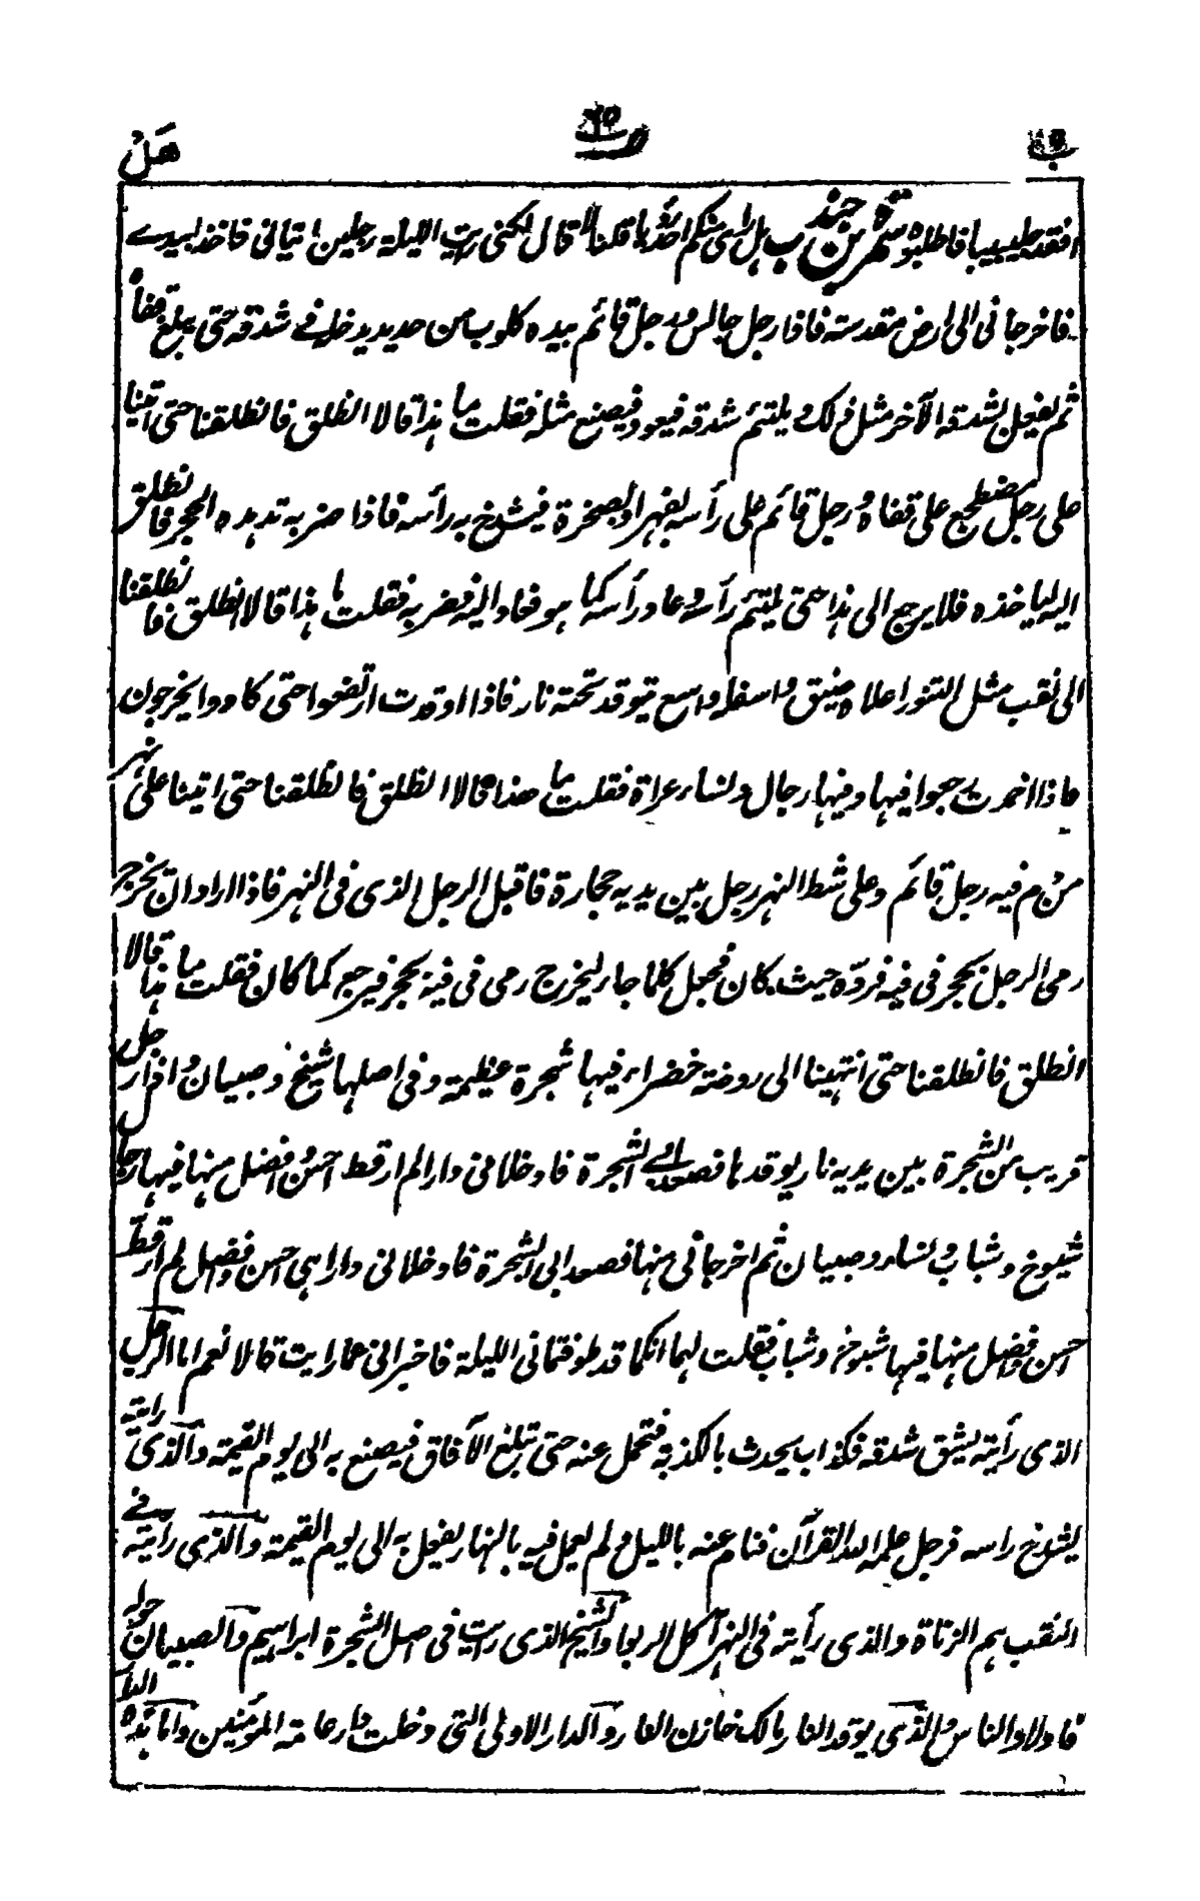 هَلْ
افقد جليبيبا فاطلبوه سمرة بن جندب هل رأى منكم احد رؤيا قلنا لا قال لكنى رايت الليلة رجلين اتيانى فاخذا بيدے
فاخرجانى الى ارض مقدسته فاذا رجل جالس ورجل قائم بيده كلوب من حديد يدخله فے شدقه حتى يبلغ قفاه
ثم يفعل بشدقه الآخر مثل ذلك ويلتئم شدقه فيعود فيصنع مثله فقلت ما هذا قالا انطلق فانطلقنا حتى اتينا
على رجل مضطجع على قفاه ورجل قائم على رأسه بفهر او بصخرة فيشدخ به رأسه فاذا ضربه تدهده الحجر فانطلق
اليه لياخذه فلا يرجع الى هذا حتى يلتئم رأسه وعاد رأسه كما هو فعاد اليه فضربه فقلت ما هذا قالا انطلق فانطلقنا
الى نقب مثل التنور اعلاه ضيق واسفله واسع تتوقد تحته نار فاذا اوقدت ارتفعوا حتى كادوا يخرجون
فاذا اخمدت رجعوا فيها وفيها رجال ونساء عراة فقلت ما هذا قالا انطلق فانطلقنا حتى اتينا على نهر
من دم فيه رجل قائم وعلى شط النهر رجل بين يديه حجارة فاقبل الرجل الذى فى النهر فاذا اراد ان يخرج
رمى الرجل بحجر فى فيه فردّه حيث كان فجعل كلما جاء ليخرج رمى فى فيه بحجر فيرجع كما كان فقلت ما هذا قالا
انطلق فانطلقنا حتى انتهينا الى روضة خضراء فيها شجرة عظيمة وفى اصلها شيخ وصبيان واذا رجل
قريب من الشجرة بين يديه نار يوقدها فصعدا بى الشجرة فادخلانى دارا لم ار قط احسن وافضل منها فيها رجال
شيوخ وشباب ونساء وصبيان ثم اخرجانى منها فصعدا بى الشجرة فادخلانى دارا هى احسن وافضل لم ار قط
احسن وافضل منها فيها شيوخ وشباب فقلت لهما انكما قد طوفتمانى الليلة فاخبرانى عما رايت قالا نعم اما الرجل
الذى رأيته يشق شدقه فكذاب يحدث بالكذبة فتحمل عنه حتى تبلغ الآفاق فيصنع به الى يوم القيمة والذى رايته
يشدخ راسه فرجل علمه الله القرآن فنام عنه بالليل ولم يعمل فيه بالنهار يفعل به الى يوم القيمة والذى رايته فے
النقب هم الزناة والذى رأيته فى النهر آكل الربوا والشيخ الذى رايت فى اصل الشجرة ابراهيم والصبيان حوله
فاولاد الناس والذى يوقد النار مالك خازن النار والدار الاولى التى دخلت دار عامة المؤمنين واما هذه الدار